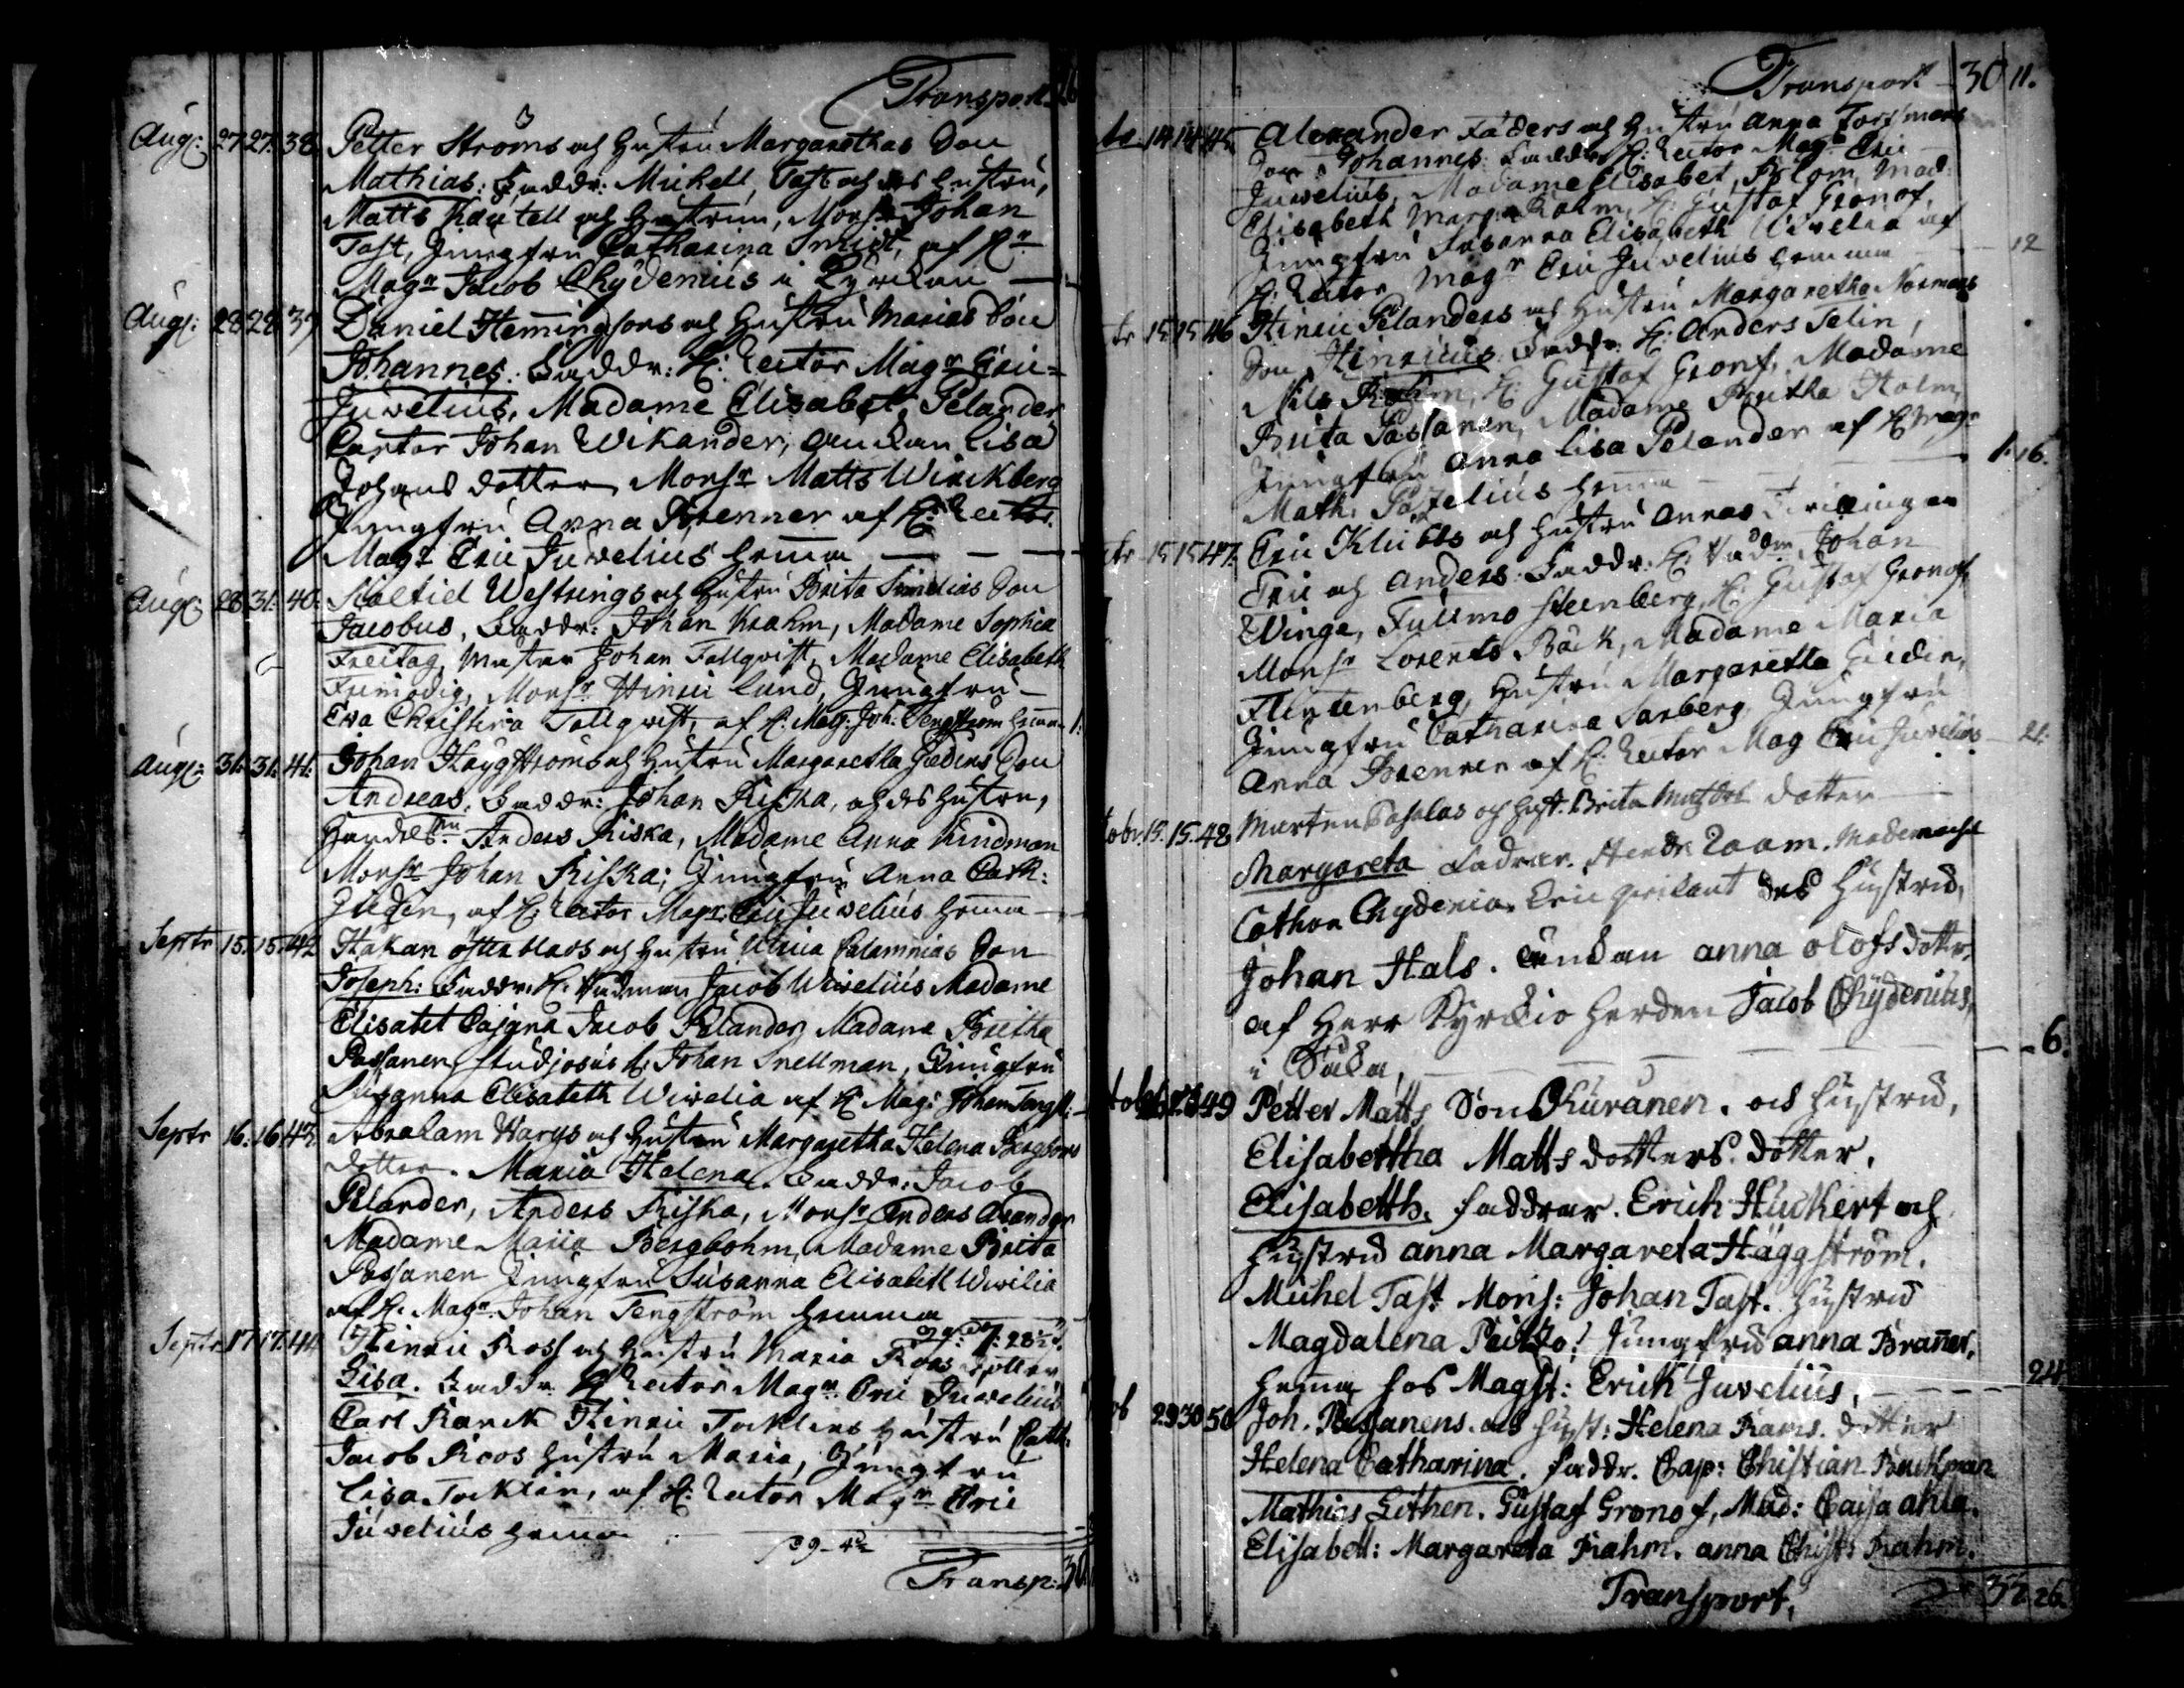 Transport
Aug: 27 27. 38 Petter Ströms och Hustru Margarethas Son
Mathias: Faddr: Michell Tast och des hustru,
Matts Kautell och Hustrun, Monsr Johan
Tast, Jungfru Catharina Smidt, af Hr
Magr Jacob Chydenius i Kyrckan
Aug: 28 28 39 Daniel Hemingsons och Hustru Marias Son
Johannes. Faddr: H: Rector Magr Eric
Juvelius, Madame Elisabet Pelander
Cantor Johan Wikander, änckan Lisa
Johans dotter Monsr Matts Winckberg
Jungfru Anna Brenner af H: Rector
Magr Eric Juvelius hemma
Aug: 28 31. 40: Westrings och Hustru Brita Son
Jacobus, Faddr: Johan Krahm, Madame Sophia
Freitag, Mäster Johan Tallqvist, Madame Elisabeth
Frimodig, Monsr Hinric Lund, Jungfru
Eva Christina Tallqvist, af H: Mag: Joh: Tengström hemma 1:
Aug: 31. 31. 41. Johan Häggströms och Hustru Margaretha Gedens Son
Andreas. Faddr: Johan Riska, och des Hustru,
Anders Riska, Madame Anna Kindman
Monsr Johan Riska; Jungfru Anna Cath:
Geden, af H: Rector Magr: Eric Juvelius hemma
Septr 15. 15. 42 Håkan österblads och Hustru Ulrica Calamnias Son
Joseph: Faddr: H: Rådman Jacob Wivelius Madame
Elisabet Cajana Jacob Pelander, Madame Britha
Passanen, Studjosus H: Johan Snellman, Jungfru
Susanna Elisabeth Wivelia af H Mag: Johan Tengst:
Septr 16: 16 43 Abraham Wargs och Hustru Margaretha Helena Bergboms
dotter. Maria Helena. Faddr: Jacob
Pelander, Anders Riska, Monsr Anders
Madame Maria Bergbohm, Madame Brita
Passanen Jungfru Susanna Elisabeth Wivilia
af H. Magr Johan Tengström hemma
Septr 17 17: 44 Hinric Ross och Hustru Maria Roos dotter
Lisa. Faddr H Rector Magr Eric Juvelius
Carl Ranck Hinric Tocklins Hustru Cath:
Jacob Roos Hustru Maria, Jungfru
Lisa Tocklin, af H: Rector Magr Eric
Juvelius hemma
Transp: 30
Transport 30 11.
14 14 45 Alexander Fäders och Hustru Anna Forsmans
Son Johannes: Faddr H: Rector Magr Eric
Juvelius, Madame Elisabet Blom, Mad:
Elisabeth Marg: Rahm, H: Gustaf Gronof,
Jungfru Susanna Elisabeth Wivelia af
H: Rector Magr Eric Juvelius hemma 12
15 15 46 Hinric Pelanders och Hustru Margaretha Normans
Son Hinricus Faddr: H: Anders Telin,
Nils Rahm, H: Gustaf Gronf, Madame
Brita Passanen, Madame Britha Holm,
Jungfru Anna Lisa Pelander af H Magr
Math: hemma 1. 16.
15 15 47. Eric Klubbs och Hustru Annas
Eric och Anders: Faddr: H: Rådm Johan
Winge, Steenberg, H: Gustaf Gronof,
Monsr Lorents Bäck, Madame Maria
Flintenberg, Hustru Margaretha Geden,
Jungfru Catharina Sarberg, Jungfru
Anna Brenner af H: Rector Mag Eric Juvelius 21.
tobr. 15. 15. 48 Mårten och Hust: Brita dotter
Margareta Faddrar. Raam.
Cathar Chydenia. Eric des Hustru,
Johan Hals. änckan anna olofs dotter,
af Herr Kyrckio Herden Jacob Chydenius,
i 6.
49 Petter Matts Son Kuranen. och Hustru,
Elisabettha Matts dotters. dotter.
Elisabetth. faddrar. Erich Huckert och
Hustru anna Margareta Häggström.
Michel Tast Mons: Johan Tast. Hustru
Magdalena Peitzo! Jungfru anna Braner,
hema hos Magst: Erich Juvelius, 24
ob 29 30 50 Joh. Passanens. och Hust: Helena Rams. dotter
Helena Catharina. faddr. Cap: Christian Buckman
Mathias Lithen. Gustaf Gronof, Mad: Caisa ahla.
Elisabett: Margareta Rahm. anna Christ: Rahm.
Transport, 32 26